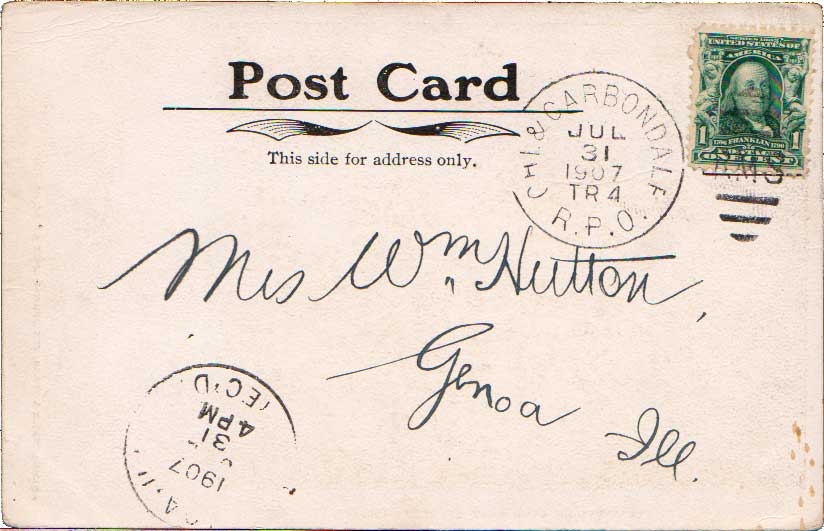 Post Card
This side for address only.
CHI. & CARBONDALE
JUL
31
1907
TR 4
R.P.O.
UNITED STATES OF
AMERICA
1 1
1706 FRANKLIN 1790
POSTAGE
ONE CENT
RMS
Mrs Wm Hutton,
Genoa
Ill.
REC'D
4 PM
31
1907